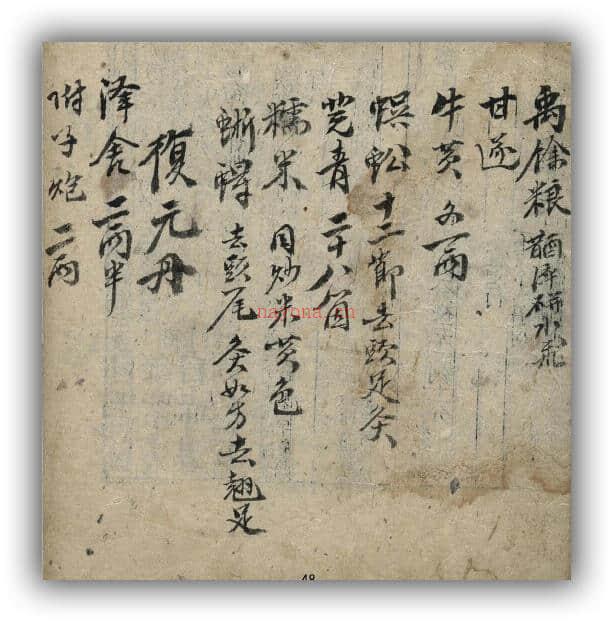 禹餘粮 醋淬研水飛
甘遂
牛黄 各一両
蜈蚣 十二節去頭足炙
芫青 二十八箇
糯米 同炒米黄色
蜥蜴 去頭尾炙如方去翅足
禎元丹
泽舍 二両半
附子炮 二両
narona.cn
48